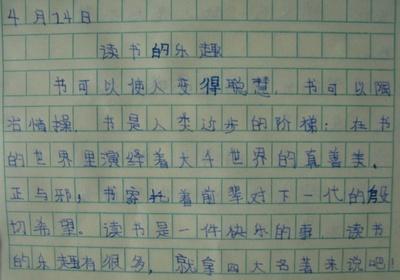 4月14日
读书的乐趣
书可以使人变得聪慧，书可以陶
冶情操，书是人类进步的阶梯；在书
的世界里演绎着大千世界的真善美、
正与邪，书寄托着前辈对下一代的殷
切希望。读书是一件快乐的事，读书
的乐趣有很多，就拿四大名著来说吧！